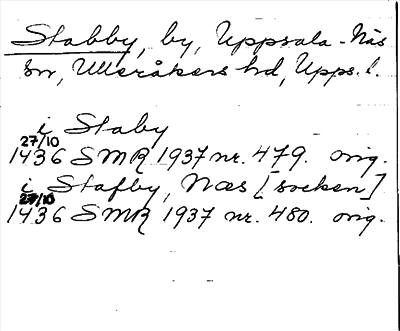 Stabby, by, Uppsala-Näs
sn, Ulleråkers hd, Upps. l.
i Staby
27/10
1436 SMR 1937 nr. 479. orig.
i Stafby, Næs [socken]
27/10
1436 SMR 1937 nr. 480. orig.